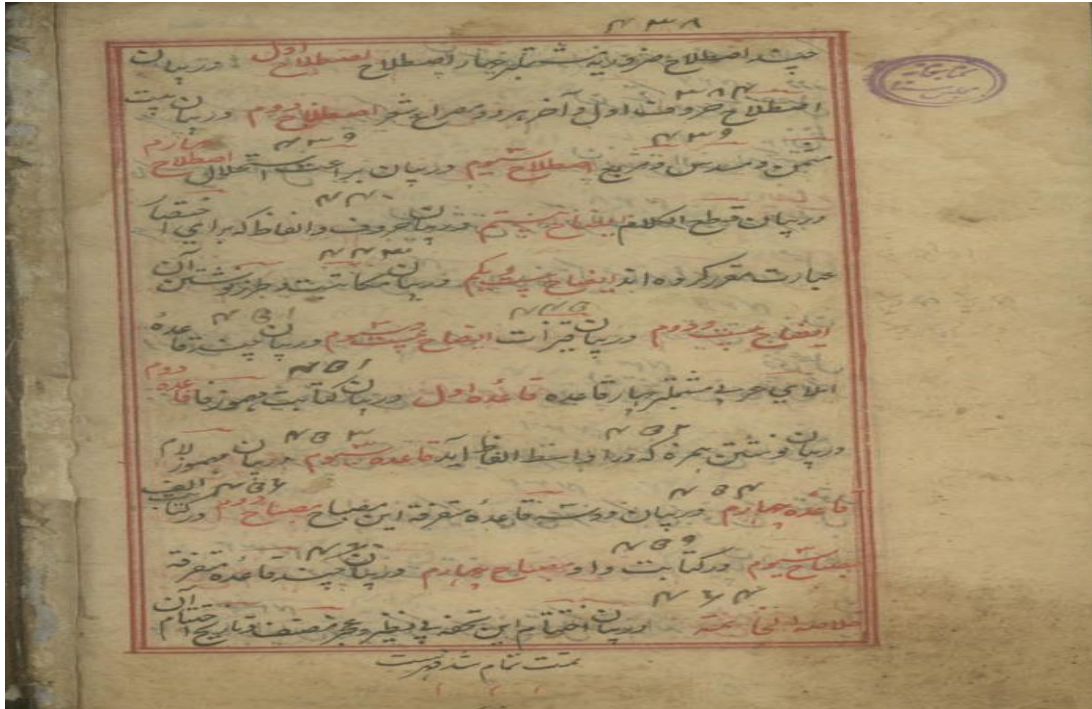 ۴۳۸
چند اصطلاح ضروریه مشتملبر چهار اصطلاح اصطلاح اول در بیان
اصطلاح حروف اول و آخر هر دو مصراع شعر اصطلاح دوم در بیان بیت
۴۳۹ ۴۳۹
مثمن و مسدس و مربع اصطلاح سیوم در بیان براعت استهلال اصطلاح چهارم
۴۴۰
در بیان قطع الکلام ایضاح بیستم در بیان حروف و الفاظ که برای اختصار
عبارت مقرر کرده اند ایضاح بیست و یکم در بیان مکاتبت و طرز نوشتن آن
۴۵۱
ایضاح بیست و دوم در بیان ایضاح بیست و سیوم در بیان چند قاعدهٔ
۴۵۱
املای عربی مشتملبر چهار قاعده قاعدهٔ اول در بیان کتابت مهموز فا قاعده دوم
۴۵۲ ۴۵۳
در بیان نوشتن همزه که در اواسط الفاظ آید قاعده سیوم در بیان مهموز لام
۴۵۴ ۴۵۶
قاعدهٔ چهارم در بیان قاعدهٔ متفرقه این مصباح مصباح دوم در کتابت الف
۴۵۹
مصباح سیوم در کتابت واو مصباح چهارم در بیان چند قاعدهٔ متفرقه
۴۶۴
خاتمه در بیان اختتام این تحفه بی نظیر و مصنف و تاریخ اختتام آن
تمت تمام شد فهرست